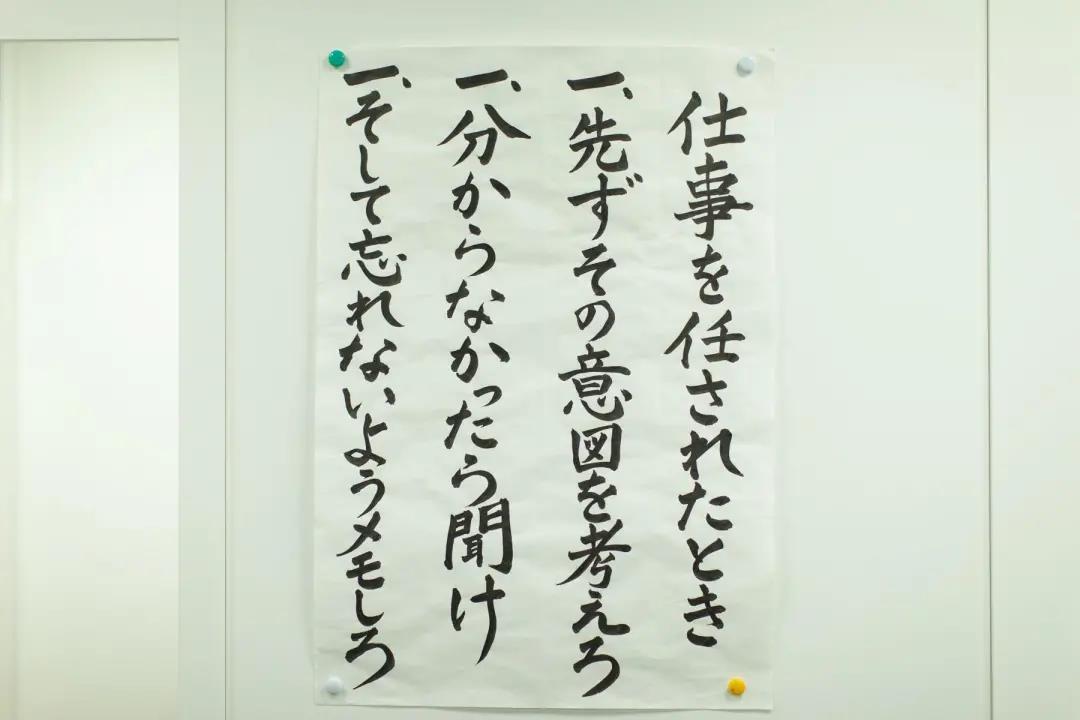 仕事を任されたとき
一、先ずその意図を考えろ
一、分からなかったら聞け
一、そして忘れないようメモしろ